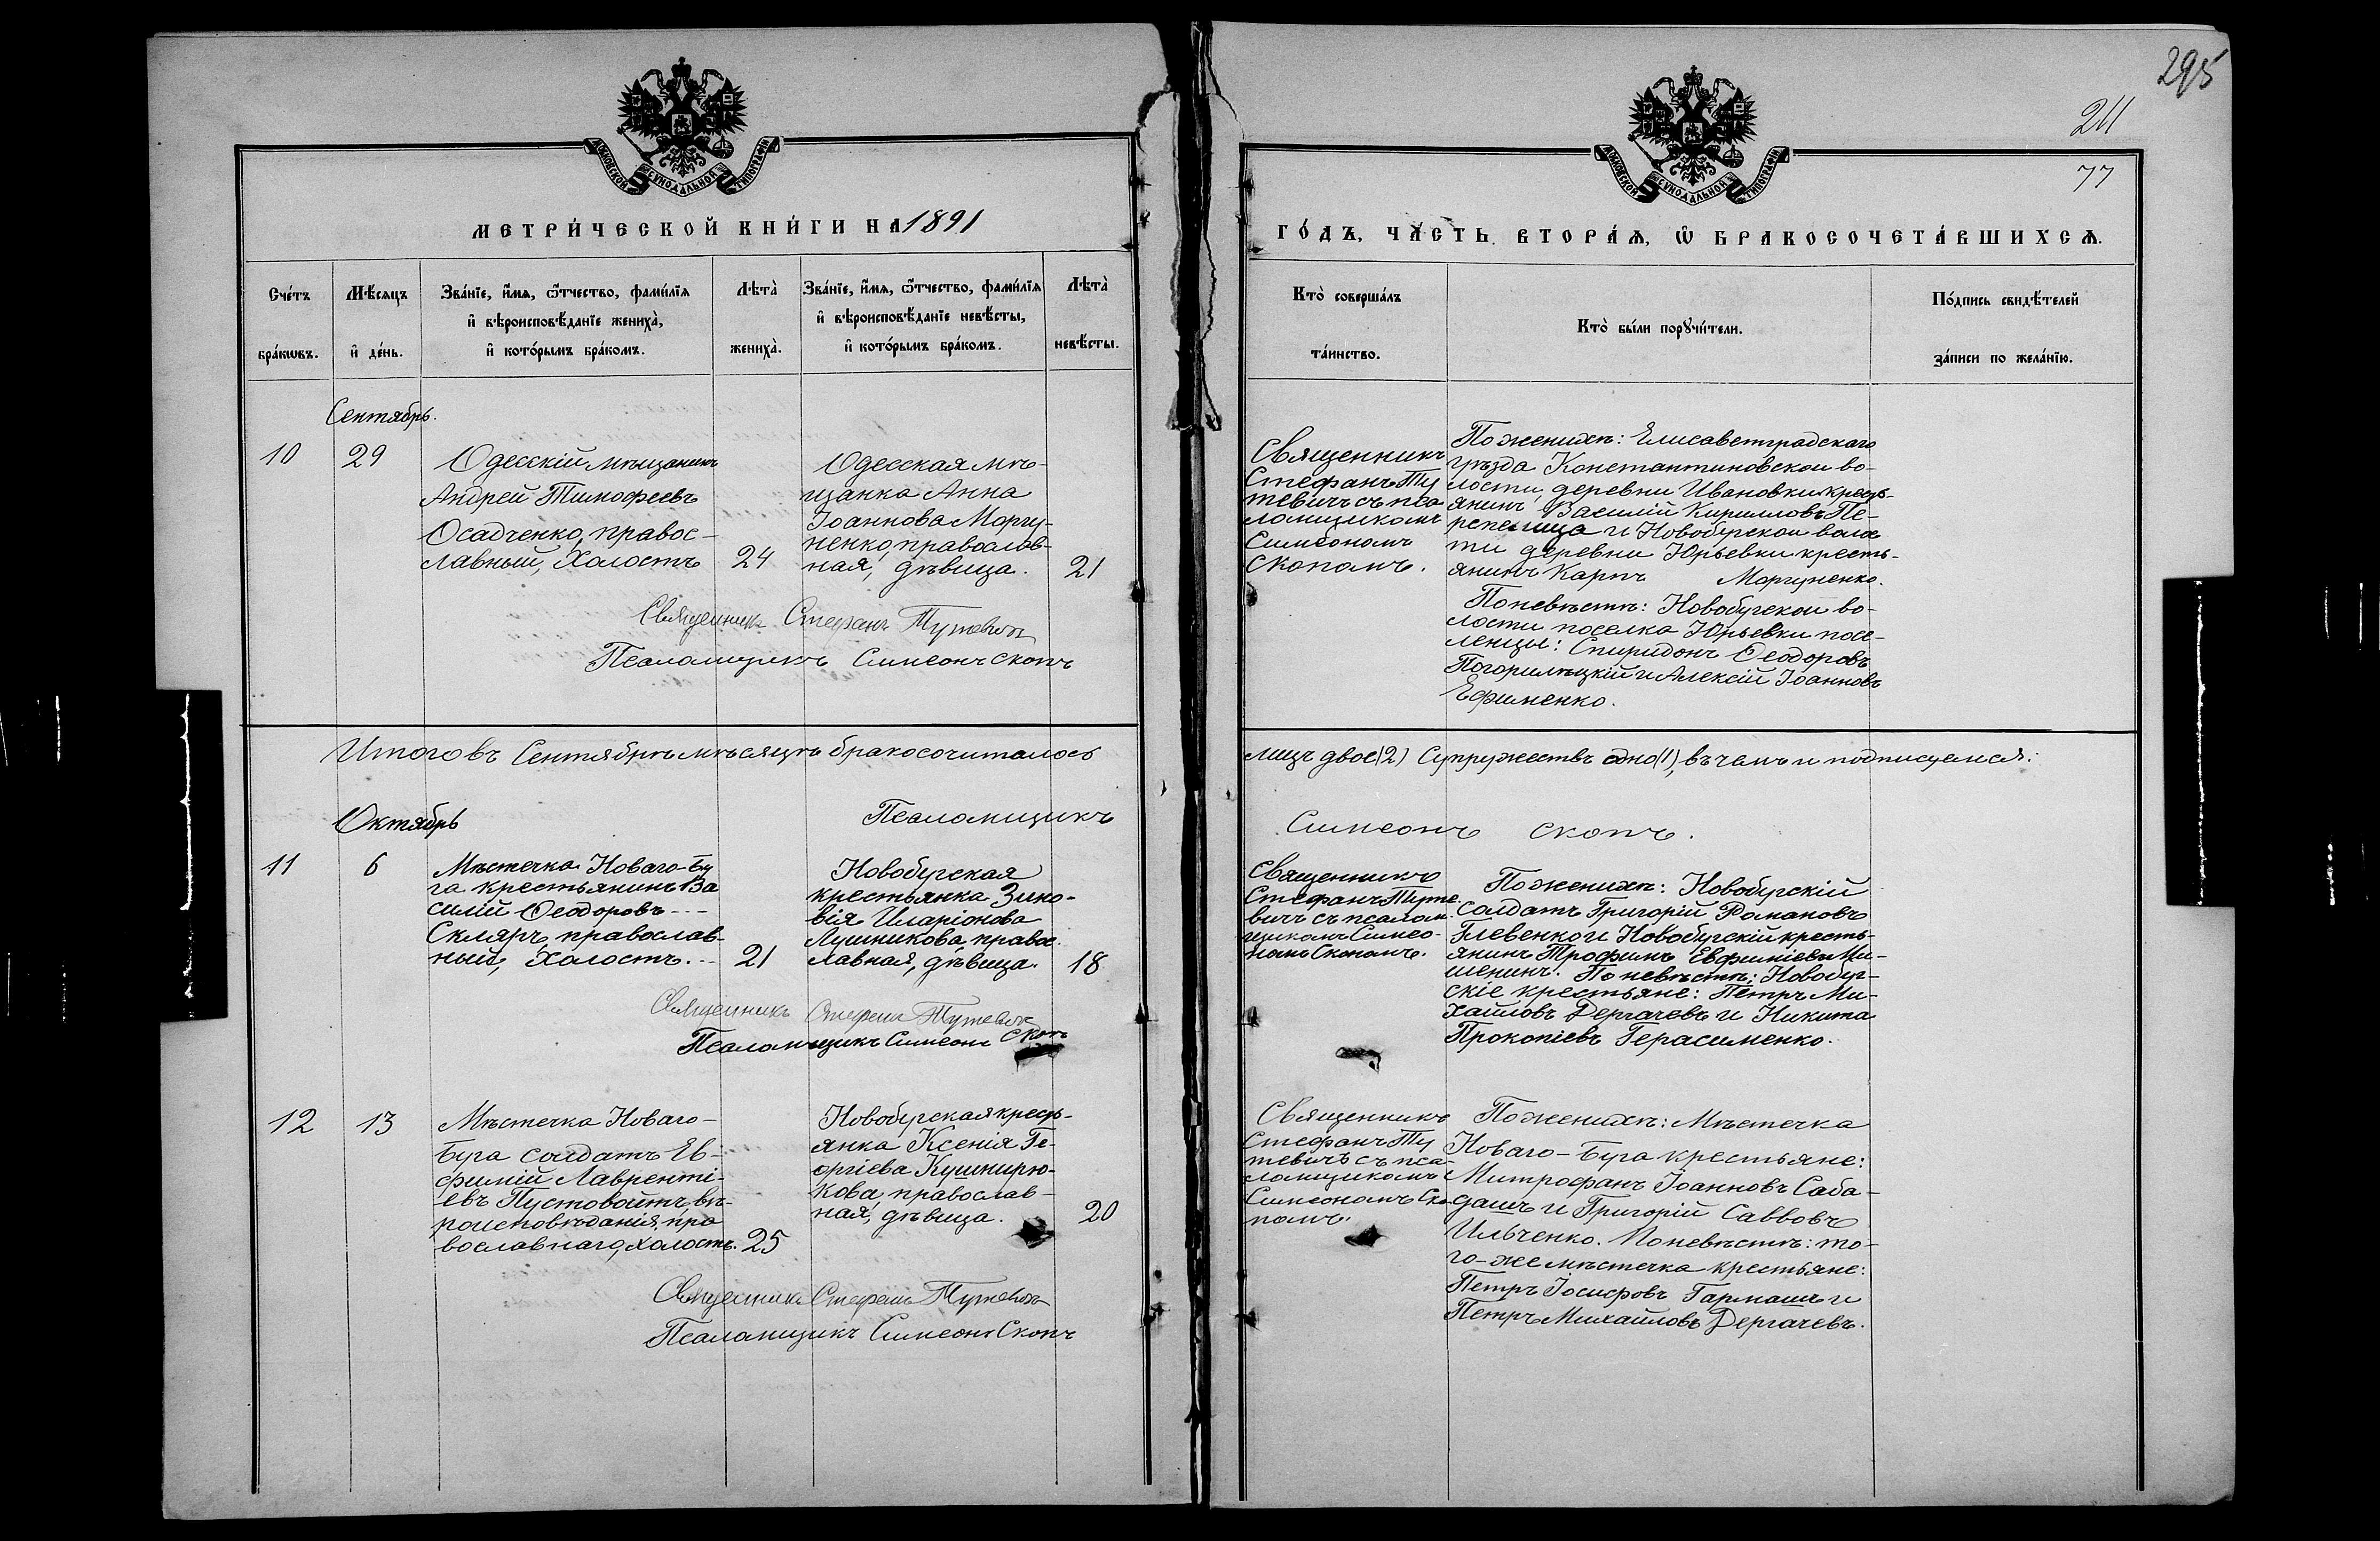 295
211
77
МОСКОВСКОЙ СѴНОДАЛЬНОЙ ТИПОГРАФІИ
МЕТРИ́ЧЕСКОЙ КНИ́ГИ НА 1891
Сче́тъ бра́кѡвъ.
Мѣ́сяцъ и҆ де́нь.
Зва́нїе, и҆́мѧ, ѻ҆́тчество, фами́лїѧ
и҆ вѣроисповѣ́данїе жениха̀,
и҆ кото́рымъ бра́комъ.
Лѣта̀ жениха̀.
Зва́нїе, и҆́мѧ, ѻ҆́тчество, фами́лїѧ
и҆ вѣроисповѣ́данїе невѣ́сты,
и҆ кото́рымъ бра́комъ.
Лѣта̀ невѣ́сты.
Сентябрь.
10
29
Одесскій мѣщанинъ
Андрей Тимофеевъ
Осадченко, правос-
лавный, холостъ
24
Одесская мѣ-
щанка Анна
Іоаннова Моргу-
ненко, православ-
ная, дѣвица.
21
Священникъ Стефанъ Тутевичъ
Псаломщикъ Симеонъ Скопъ
Итого въ Сентябрѣ мѣсяцѣ бракосочиталось
Октябрь
Псаломщикъ
11
6
Мѣстечка Новаго-Бу
га крестьянинъ Ва
силій Ѳеодоровъ
Скляръ, православ-
ный, холостъ.
21
Новобугская
крестьянка Зино-
вія Иларіонова
Лушникова, правос-
лавная, дѣвица.
18
Священникъ Стефанъ Тутевичъ
Псаломщикъ Симеонъ Скопъ
12
13
Мѣстечка Новаго-
Буга солдатъ Ев-
фимій Лавренті-
евъ Пустовойтъ, вѣ-
роисповѣданія пра
вославнаго, холостъ.
25
Новобугская кресть-
янка Ксенія Ге-
оргіева Кушнирю-
кова, православ-
ная, дѣвица.
20
Священникъ Стефанъ Тутевичъ
Псаломщикъ Симеонъ Скопъ
МОСКОВСКОЙ СѴНОДАЛЬНОЙ ТИПОГРАФІИ
ГО́ДЪ, ЧА́СТЬ ВТОРА́Ѧ, Ѡ҆ БРАКОСОЧЕТА́ВШИХСѦ.
Кто̀ соверша́лъ та́инство.
Кто̀ бы́ли порꙋчи́тели.
По́дпись свидѣ́телей за́писи по жела́нїю.
Священникъ
Стефанъ Ту
тевичъ съ пса
ломщикомъ
Симеономъ
Скопомъ.
По женихѣ: Елисаветградскаго
уѣзда Константиновской во-
лости, деревни Ивановки кресть-
янинъ Василій Кирилловъ Пе-
репелица и Новобугской волос
ти деревни Юрьевки кресть-
янинъ Карпъ Моргуненко.
По невѣстѣ: Новобугской во-
лости поселка Юрьевки посе-
ленцы: Спиридонъ Ѳеодоровъ
Погорилецкій и Алексій Іоанновъ
Ефименко.
лицъ двое (2) Супружествъ одно (1), въ чемъ и подписуемся:
Симеонъ Скопъ.
Священникъ
Стефанъ Туте
вичъ съ псалом-
щикомъ Симео-
номъ Скопомъ.
По женихѣ: Новобугскій
солдатъ Григорій Романовъ
Глевенко и Новобугскій кресть-
янинъ Трофимъ Евфиміевъ Ми-
шенинъ. По невѣстѣ: Новобуг-
скіе крестьяне: Петръ Ми-
хайловъ Дергачевъ и Никита
Прокопіевъ Герасименко.
Священникъ
Стефанъ Ту
тевичъ съ пса-
ломщикомъ
Симеономъ Ско-
помъ.
По женихѣ: Мѣстечка
Новаго-Буга крестьяне:
Митрофанъ Іоанновъ Саба-
дашъ и Григорій Саввовъ
Ильченко. По невѣстѣ: то-
го-же мѣстечка крестьяне:
Петръ Іосифовъ Гармашъ и
Петръ Михайловъ Дергачевъ.